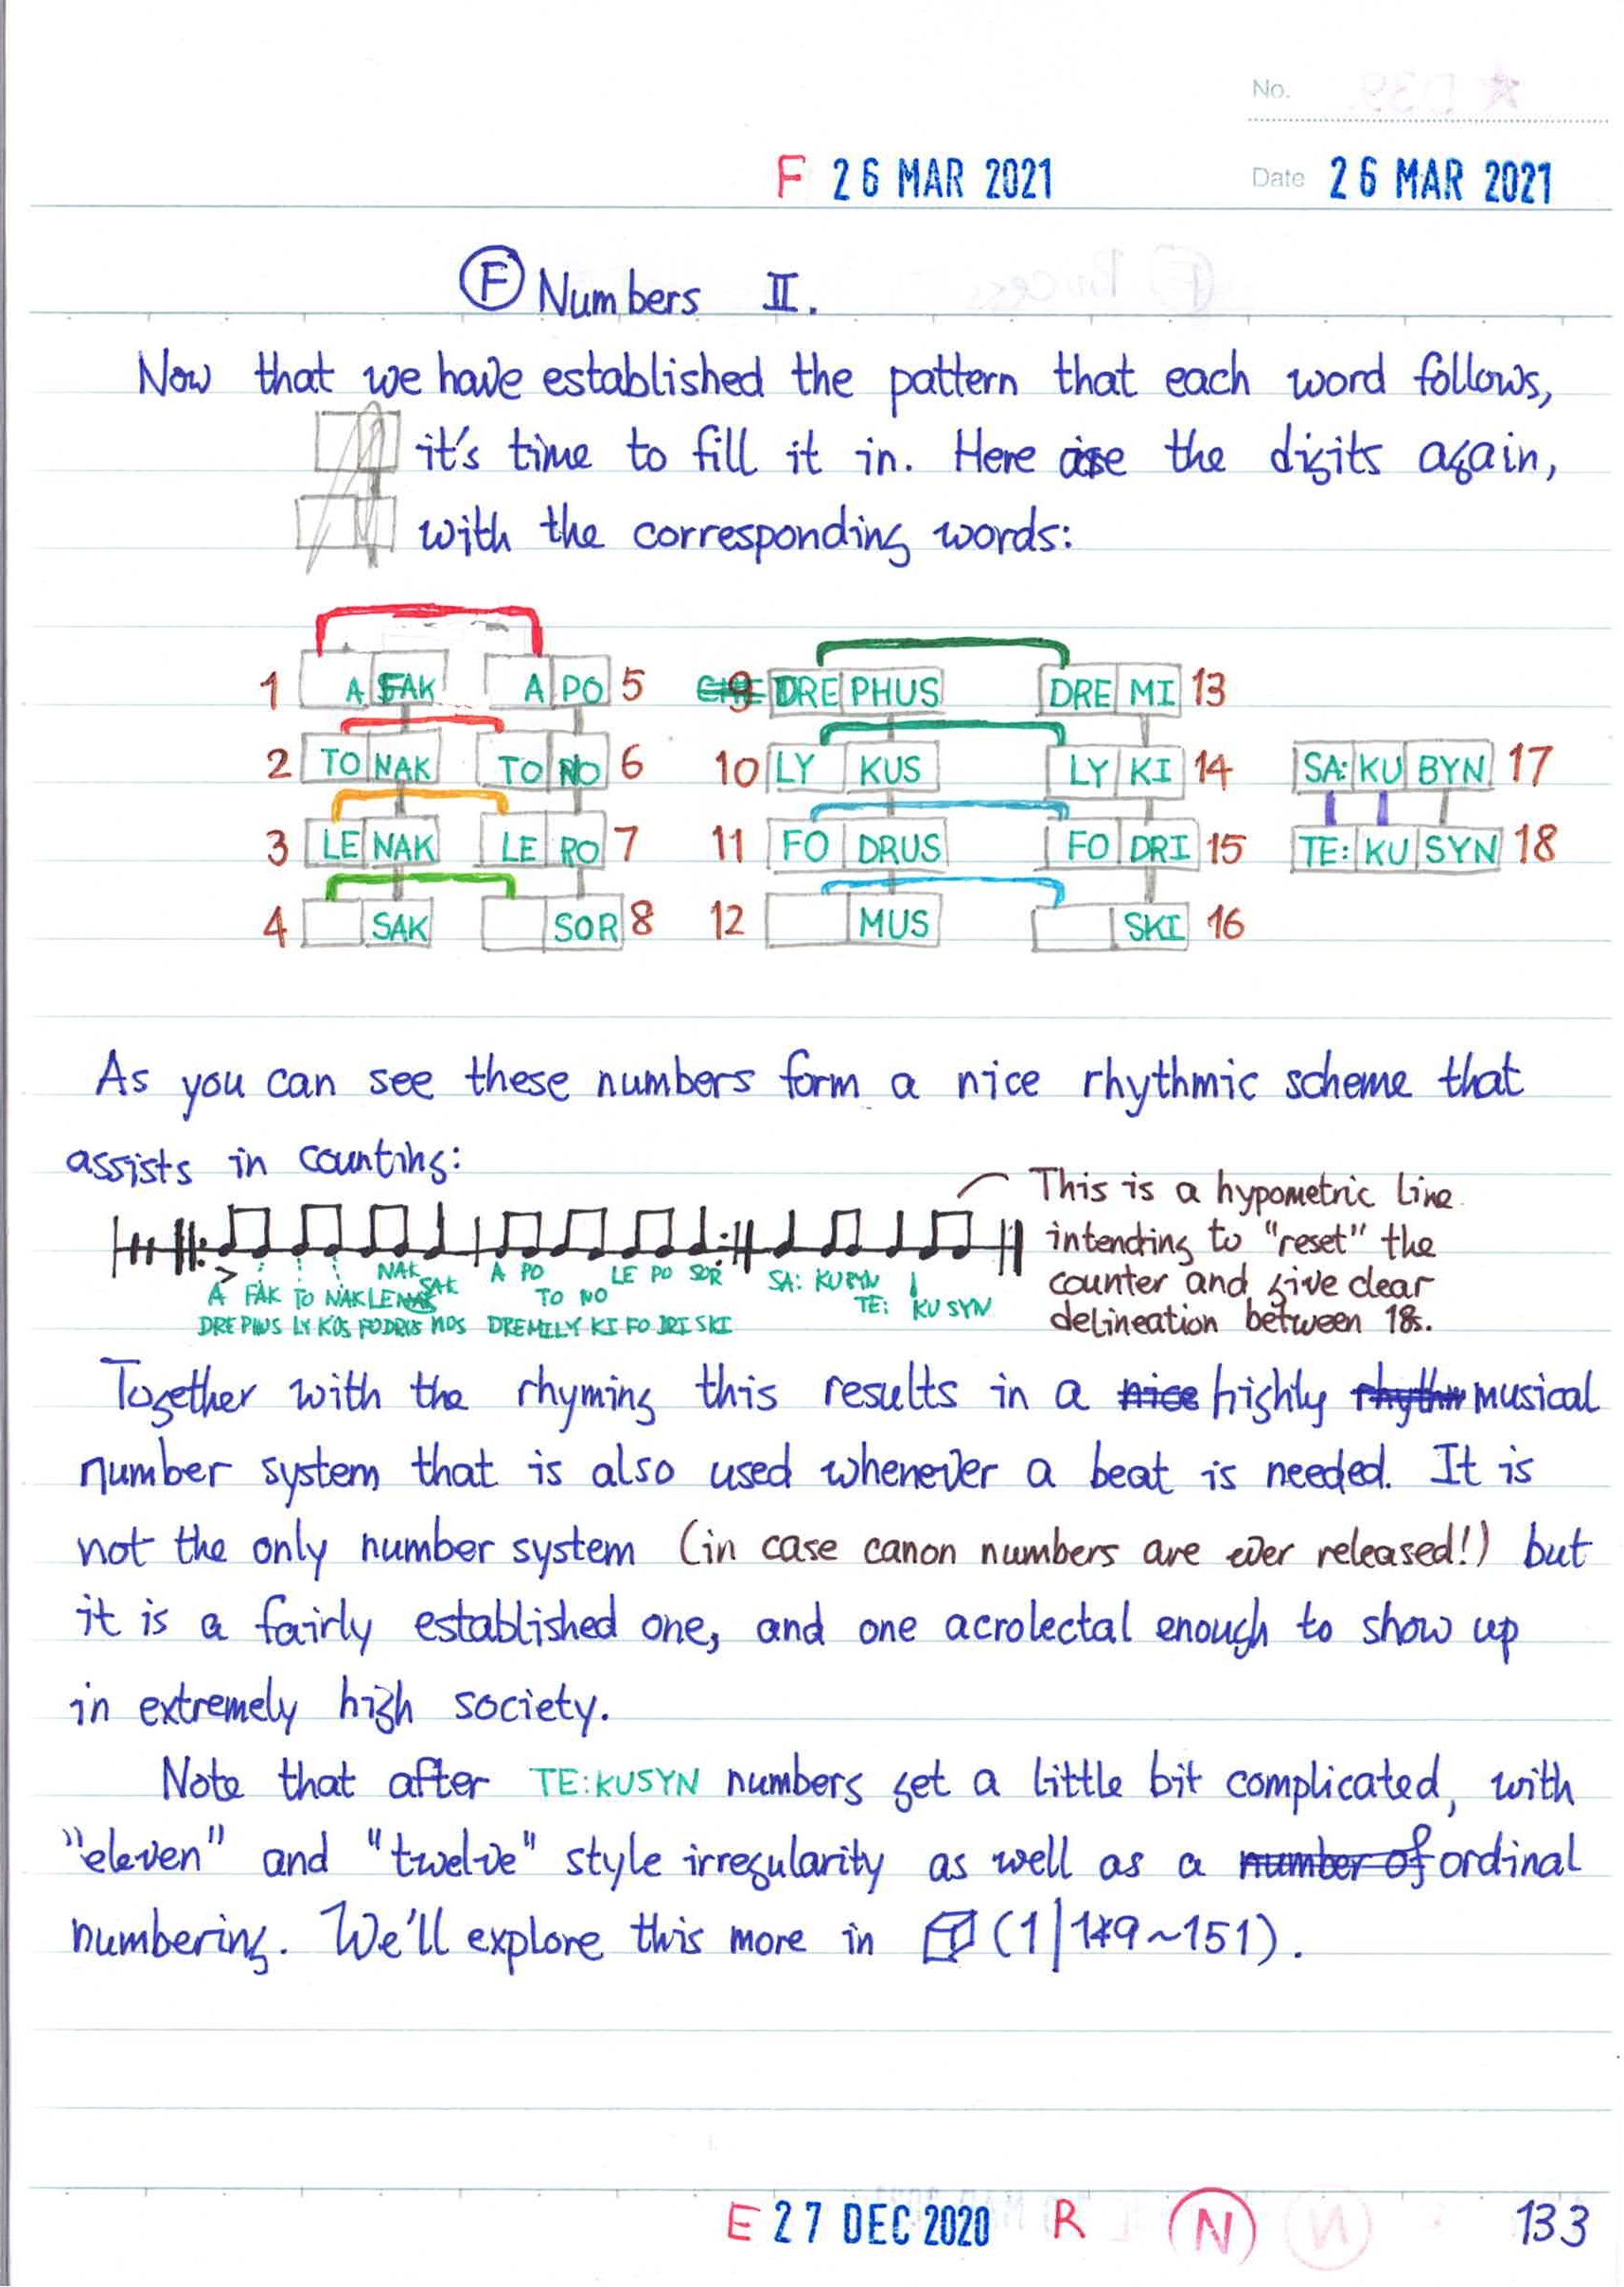 No.
F 26 MAR 2021 Date 26 MAR 2021
F Numbers II.
Now that we have established the pattern that each word follows,
it's time to fill it in. Here are the digits again,
with the corresponding words:
1 A FAK A PO 5 9 DRE PHUS DRE MI 13
2 TO NAK TO NO 6 10 LY KUS LY KI 14 SA: KU BYN 17
3 LE NAK LE PO 7 11 FO DRUS FO DRI 15 TE: KU SYN 18
4 SAK SOR 8 12 MUS SKI 16
As you can see these numbers form a nice rhythmic scheme that
assists in counting:
This is a hypometric line
intending to "reset" the
counter and give clear
delineation between 18s.
A FAK TO NAK LE NAK SAK A PO TO NO LE PO SOR SA: KU BYN TE: KU SYN
DRE PHUS LY KUS FO DRUS MUS DRE MI LY KI FO DRI SKI
Together with the rhyming this results in a nice highly rhythm musical
number system that is also used whenever a beat is needed. It is
not the only number system (in case canon numbers are ever released!) but
it is a fairly established one, and one acrolectal enough to show up
in extremely high society.
Note that after TE:KUSYN numbers get a little bit complicated, with
"eleven" and "twelve" style irregularity as well as a number of ordinal
numbering. We'll explore this more in (1|149~151).
E 27 DEC 2020 R N 133